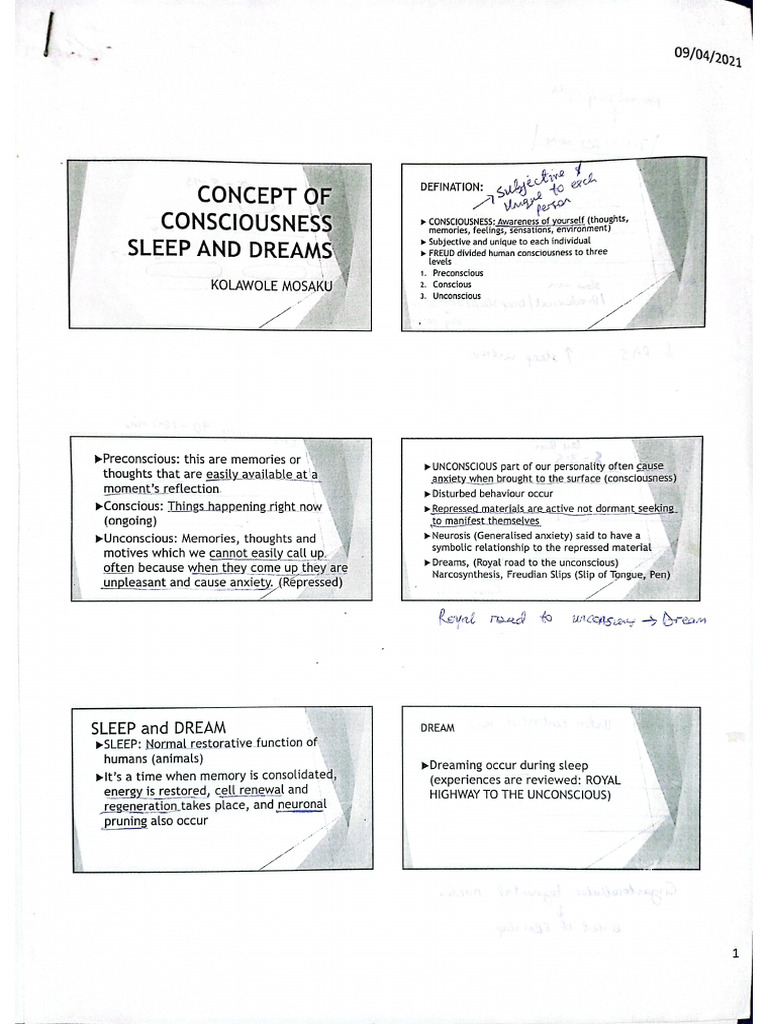 09/04/2021
CONCEPT OF
CONSCIOUSNESS
SLEEP AND DREAMS
KOLAWOLE MOSAKU
DEFINATION:
→ Subjective &
Unique to each
person
▶ CONSCIOUSNESS: Awareness of yourself (thoughts,
memories, feelings, sensations, environment)
▶ Subjective and unique to each individual
▶ FREUD divided human consciousness to three
levels
1. Preconscious
2. Conscious
3. Unconscious
▶Preconscious: this are memories or
thoughts that are easily available at a
moment's reflection
▶Conscious: Things happening right now
(ongoing)
▶Unconscious: Memories, thoughts and
motives which we cannot easily call up
often because when they come up they are
unpleasant and cause anxiety. (Repressed)
▶ UNCONSCIOUS part of our personality often cause
anxiety when brought to the surface (consciousness)
▶ Disturbed behaviour occur
▶ Repressed materials are active not dormant seeking
to manifest themselves
▶ Neurosis (Generalised anxiety) said to have a
symbolic relationship to the repressed material
▶ Dreams, (Royal road to the unconscious)
Narcosynthesis, Freudian Slips (Slip of Tongue, Pen)
Royal road to → Dream
SLEEP and DREAM
▶SLEEP: Normal restorative function of
humans (animals)
▶It's a time when memory is consolidated,
energy is restored, cell renewal and
regeneration takes place, and neuronal
pruning also occur
DREAM
▶Dreaming occur during sleep
(experiences are reviewed: ROYAL
HIGHWAY TO THE UNCONSCIOUS)
1